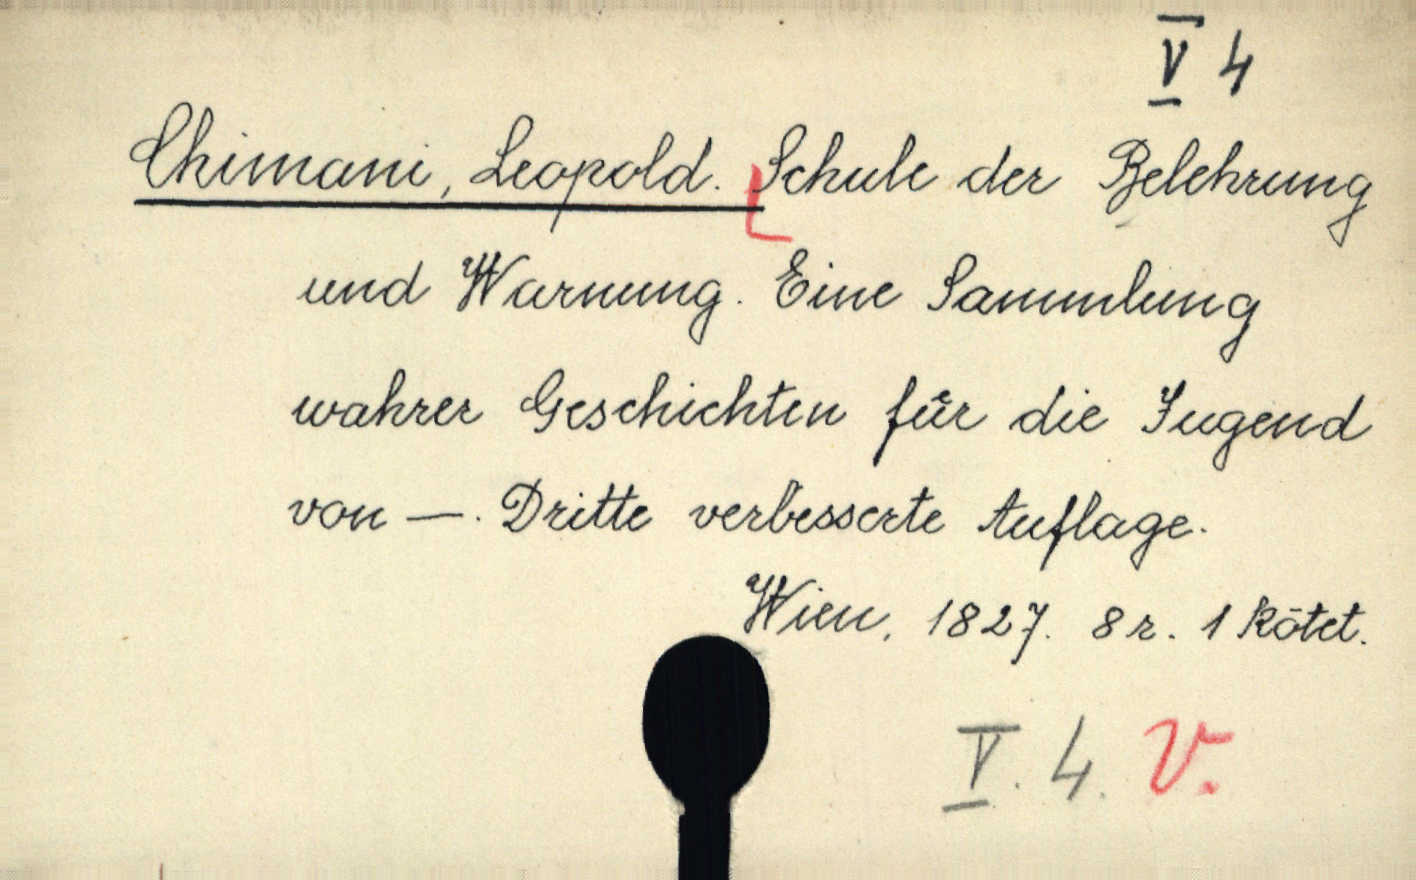 V 4
Chimani, Leopold. Schule der Belehrung
und Warnung. Eine Sammlung
wahrer Geschichten für die Jugend
von —. Dritte verbesserte Auflage.
Wien, 1827. 8 r. 1 kötet.
V. 4. V.